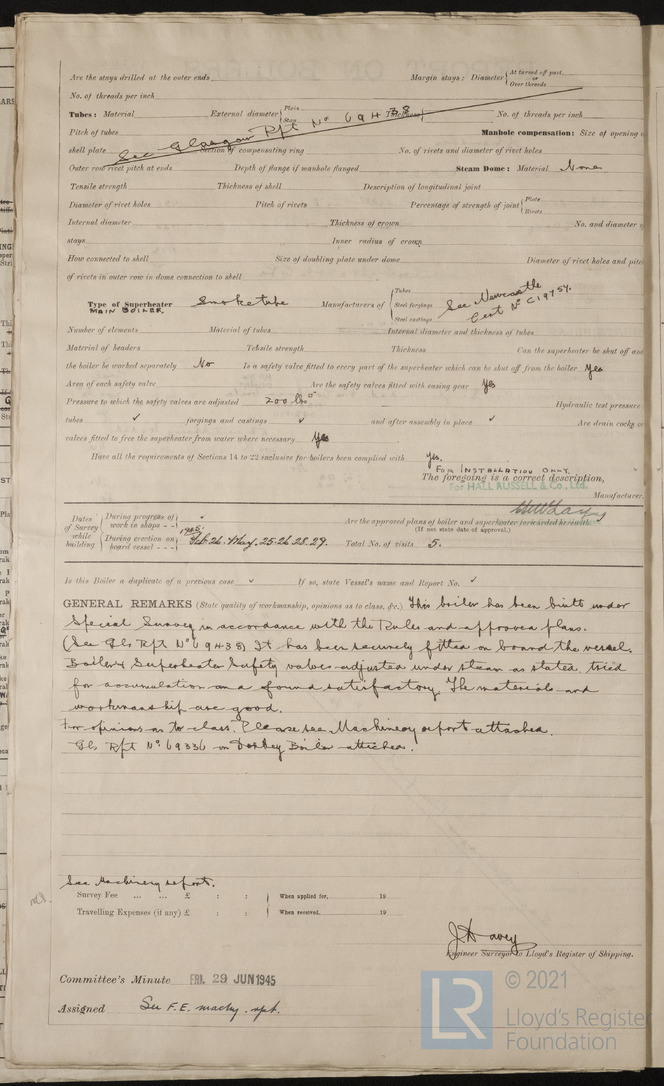 Are the stays drilled at the outer ends Margin stays: Diameter { At turned off part, or Over threads
No. of threads per inch
Tubes: Material External diameter { Plain Stay Thickness { No. of threads per inch
See Glasgow Rpt No 69438
Pitch of tubes Manhole compensation: Size of opening
shell plate Section of compensating ring No. of rivets and diameter of rivet holes
Outer row rivet pitch at ends Depth of flange if manhole flanged Steam Dome: Material None
Tensile strength Thickness of shell Description of longitudinal joint
Diameter of rivet holes Pitch of rivets Percentage of strength of joint { Plate Rivets
Internal diameter Thickness of crown No. and diameter
stays Inner radius of crown
How connected to shell Size of doubling plate under dome Diameter of rivet holes and pitch
of rivets in outer row in dome connection to shell
Type of Superheater Smoke tube Manufacturers of { Tubes Steel forgings Steel castings See Newcastle Cert No C19754.
MAIN BOILER
Number of elements Material of tubes Internal diameter and thickness of tubes
Material of headers Tensile strength Thickness Can the superheater be shut off and
the boiler be worked separately No Is a safety valve fitted to every part of the superheater which can be shut off from the boiler Yes
Area of each safety valve Are the safety valves fitted with easing gear Yes
Pressure to which the safety valves are adjusted 200 lbs Hydraulic test pressure
tubes ✓ forgings and castings ✓ and after assembly in place ✓ Are drain cocks or
valves fitted to free the superheater from water where necessary Yes
Have all the requirements of Sections 14 to 22 inclusive for boilers been complied with yes.
FOR INSTALLATION ONLY.
The foregoing is a correct description,
For HALL RUSSELL & Co., Ltd.
Manufacturer.
Dates of Survey while building { During progress of work in shops - - ✓ Are the approved plans of boiler and superheater forwarded herewith
(If not state date of approval.)
During erection on board vessel - - - 1945: Feb. 26. May. 25. 26. 28. 29. Total No. of visits 5.
Is this Boiler a duplicate of a previous case ✓ If so, state Vessel's name and Report No. ✓
GENERAL REMARKS (State quality of workmanship, opinions as to class, &c.) This boiler has been built under
Special Survey in accordance with the Rules and approved plans.
(See Gls Rpt No 69438) It has been securely fitted on board the vessel.
Boiler & Superheater Safety valves adjusted under steam as stated, tried
for accumulation and found satisfactory. The materials and
workmanship are good.
For opinion as to class. Please see Machinery report attached.
Gls Rpt No 69336 on Donkey Boiler attached.
See Machinery report.
Survey Fee ... ... £ : : When applied for, 19
Travelling Expenses (if any) £ : : When received, 19
J Davey
Engineer Surveyor to Lloyd's Register of Shipping.
Committee's Minute FRI. 29 JUN 1945
Assigned See F.E. machy. rpt.
LR © 2021
Lloyd's Register
Foundation